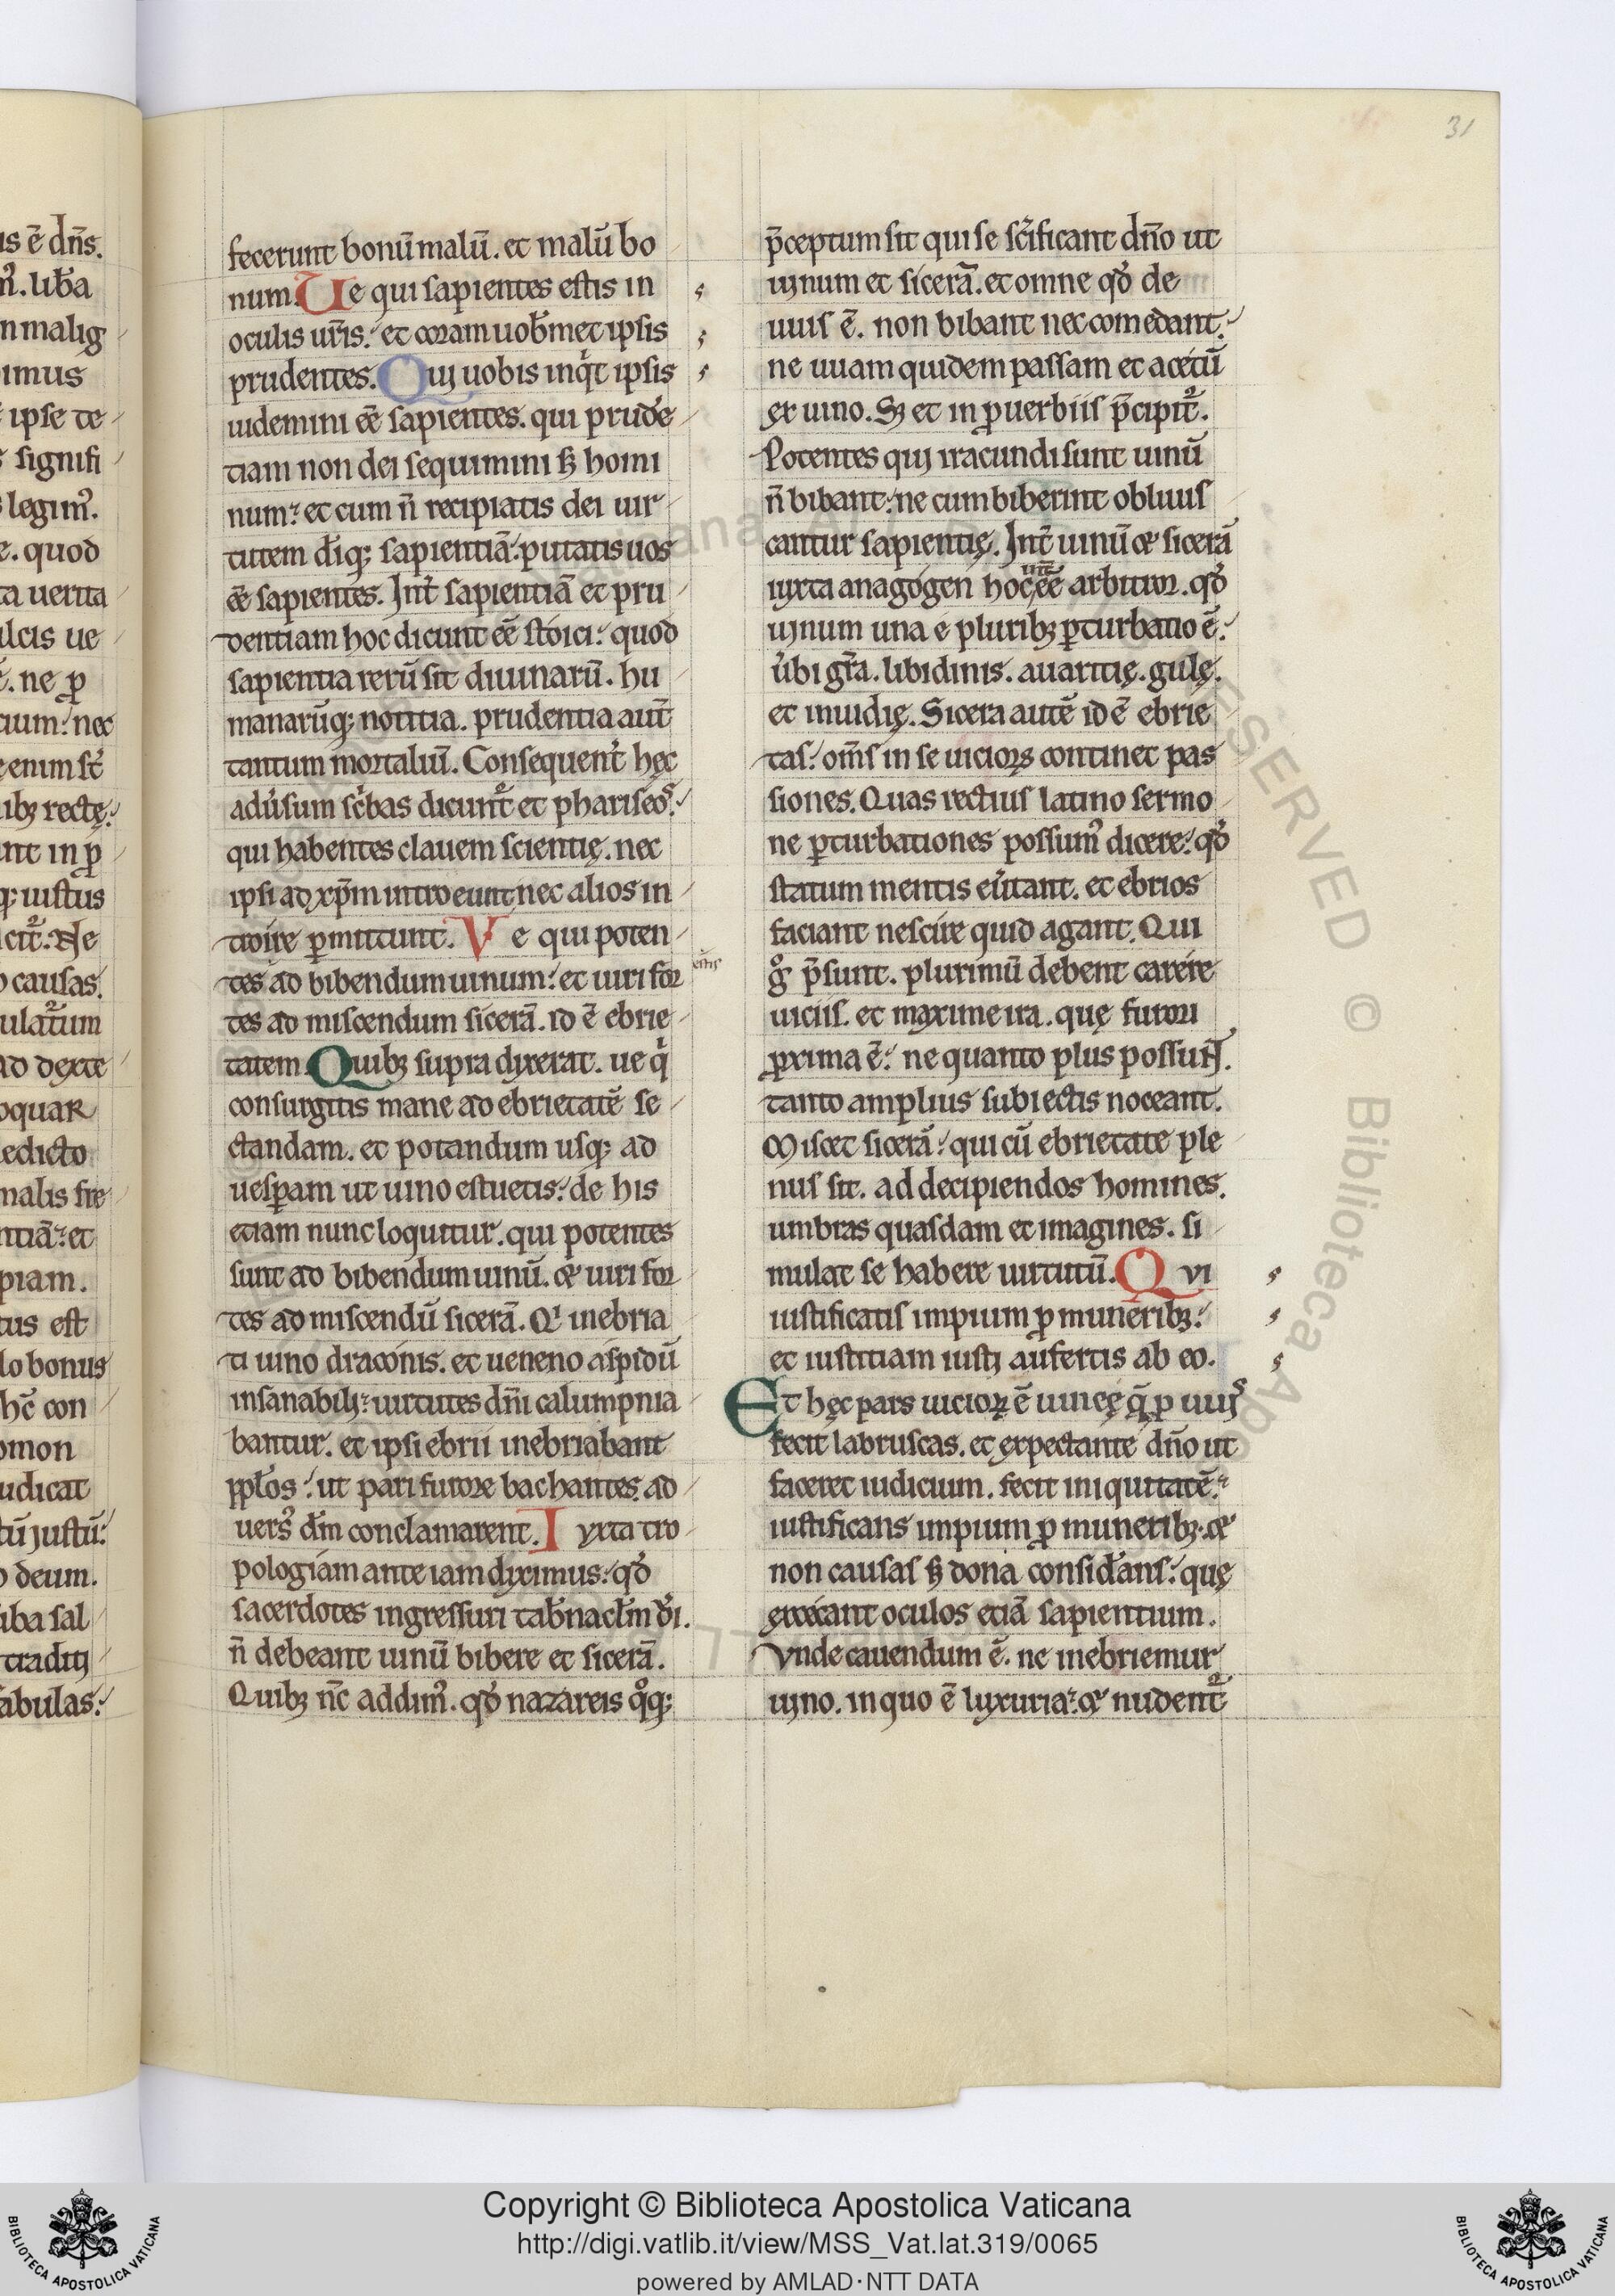 31
fecerunt bonū malū. et malū bo
num. Ve qui sapientes estis in
oculis ur̄is. et coram uob̄met ipsis
prudentes. Qui uobis inq̇t ipsis
uidemini eē sapientes. qui prudē
tiam non dei sequimini sꝫ homi
num. et cum n̄ recipiatis dei uir
tutem d̄iqꝫ sapientiā. putatis uos
eē sapientes. Int̄ sapientiā et pru
dentiam hoc dicunt eē stoici. quod
sapientia rerū sit diuinarū. hu
manarūqꝫ notitia. prudentia aut̄
tantum mortaliū. Consequent̄ hęc
adu̓sum sc̓bas dicunt̓ et phariseos.
qui habentes clauem scientię. nec
ipsi ad xp̄m introeunt nec alios in
troire ꝑmittunt. Ve qui poten
tes estis ad bibendum uinum. et uiri for
tes ad miscendum sicerā. id ē ebrie
tatem. Quibꝫ supra dixerat. ue q̇
consurgitis mane ad ebrietatē se
ctandam. et potandum usqꝫ ad
uesꝑam ut uino estuetis. de his
etiam nunc loquitur. qui potentes
sunt ad bibendum uinū. & uiri for
tes ad miscendū sicerā. Qi inebria
ti uino draconis. et ueneno aspidū
insanabili. uirtutes dn̄i calumpnia
bantur. et ipsi ebrii inebriabant
pp̄los. ut pari furore bachantes. ad
uersꝰ dm̄ conclamarent. Iuxta tro
pologiam ante iam diximus. qd̓
sacerdotes ingressuri tab̄nacl̄m d̄i.
n̄ debeant uinū bibere et sicerā.
Quibꝫ nc̄ addimꝰ. qd̓ nazareis qͦqꝫ
p̄ceptum sit qui se sc̄ificant dn̄o ut
uinum et sicerā. et omne qd̓ de
uuis ē. non bibant nec comedant.
ne uuam quidem passam et acetū
ex uino. Sꝫ et in ꝓuerbiis p̄cipit̓.
Potentes qui iracundi sunt uinū
n̄ bibant. ne cum biberint obliuis
cantur sapientię. Int̄ uinū & sicerā
iuxta anagogen hoc int̄eē arbitror. qd̓
uinum una e pluribꝫ ꝑturbatio ē.
u̓bi gr̄a. libidinis. auaritię. gulę.
et inuidię. Sicera autē id ē ebrie
tas. om̄s in se uicioꝝ continet pas
siones. Quas rectius latino sermo
ne ꝑturbationes possumꝰ dicere. qd̓
statum mentis eu̓tant. et ebrios
faciant nescire quid agant. Qui
gͦ p̄sunt. plurimū debent carere
uiciis. et maxime ira. quę furori
ꝓxima ē. ne quanto plus possunt.
tanto amplius subiectis noceant.
Miscet sicerā. qui cū ebrietate ple
nus sit. ad decipiendos homines.
umbras quasdam et imagines. si
mulat se habere uirtutū. Qui
iustificatis impium ꝓ muneribꝫ.
et iustitiam iusti aufertis ab eo.
Et hęc pars uicioꝝ ē uineę q̄ ꝓ uuis
fecit labruscas. et expectante dn̄o ut
faceret iudicium. fecit iniquitatē.
iustificans impium ꝓ muneribꝫ. &
non causas sꝫ dona consid̄ans. quę
excecant oculos etiā sapientium.
Vnde cauendum ē. ne inebriemur
uino. in quo ē luxuria. & nudent̓
Copyright © Biblioteca Apostolica Vaticana
http://digi.vatlib.it/view/MSS_Vat.lat.319/0065
powered by AMLAD·NTT DATA
BIBLIOTECA APOSTOLICA VATICANA
BIBLIOTECA APOSTOLICA VATICANA